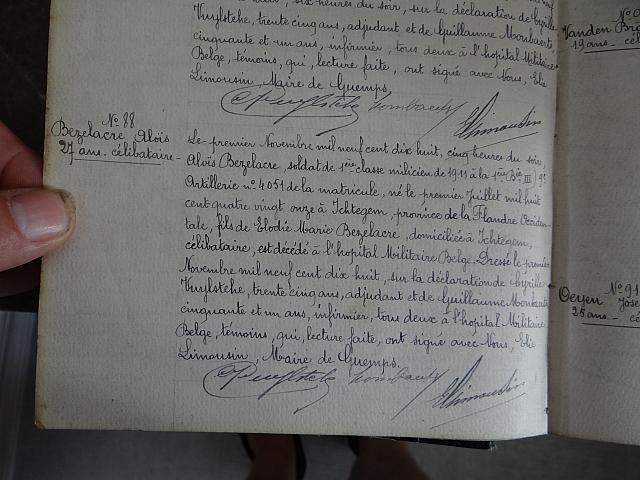 six heures du soir, sur la déclaration de Cyrille
Kuylstehe, trente cinq ans, adjudant et de Guillaume Mombaerts
cinquante et un ans, infirmier, tous deux à l'hopital Militaire
Belge, témoins, qui, lecture faite, ont signé avec Nous, Elie
Limousin, Maire de Guemps.
ELimousin
N° 88
Bezelacre Aloïs
27 ans - célibataire -
Le premier Novembre mil neuf cent dix huit, cinq heures du soir
Aloïs Bezelacre, soldat de 1ère classe milicien de 1911 à la 1ère Bie III / 9e
Artillerie n° 4051 de la matricule, né le premier Juillet mil huit
cent quatre vingt onze à Ichtegem, province de la Flandre Occiden-
tale, fils de Elodie Marie Bezelacre, domiciliée à Ichtegem,
célibataire, est décédé à l'hopital Militaire Belge. Dressé le premier
Novembre mil neuf cent dix huit, sur la déclaration de Cyrille
Kuylstehe, trente cinq ans, adjudant et de Guillaume Mombaerts
cinquante et un ans, infirmier, tous deux à l'hopital Militaire
Belge, témoins, qui, lecture faite, ont signé avec Nous, Elie
Limousin, Maire de Guemps.
ELimousin
N° 9
Vanden Bro
19 ans - cél
N° 91
Oeyen Jose
25 ans - cé